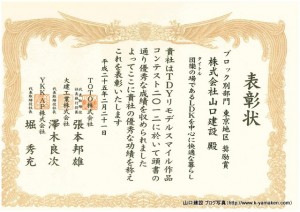 表彰状
ブロック別部門 東京地区 奨励賞
株式会社山口建設 殿
タイトル
団欒の場であるLDKを中心に快適な暮らし
貴社はTDYリモデルスマイル作品
コンテスト二〇一二に於いて頭書の
通り優秀な成績を収められました
よってここに貴社の優秀な功績を称え
これを表彰いたします
平成二十五年二月二十一日
TOTO株式会社
代表取締役 社長執行役員 張本邦雄
大建工業株式会社
代表取締役社長 澤木良次
YKK AP株式会社
代表取締役社長 堀秀充
山口建設ブログ写真(http://www.k-yamaken.com)